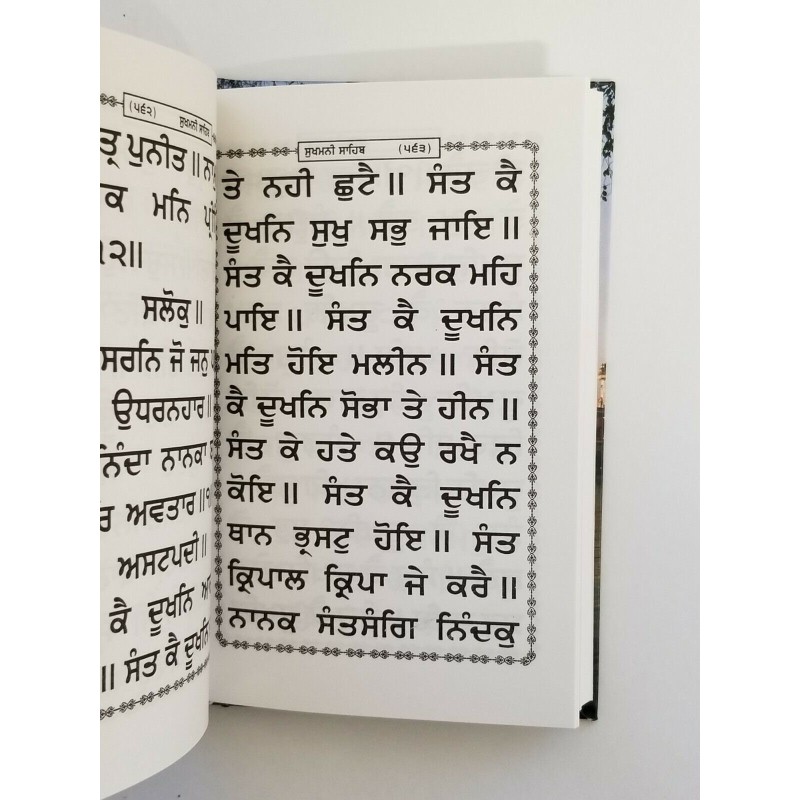 (੫੬੨) ਸੁਖਮਨੀ ਸਾਹਿਬ
ਪੁਨੀਤ ॥
ਕ ਮਨਿ
੧੨॥
ਸਲੋਕੁ ॥
ਸਰਨਿ ਜੋ ਜਨੁ
ਉਧਰਨਹਾਰ ॥
ਨਿੰਦਾ ਨਾਨਕਾ
ਰ ਅਵਤਾਰ ॥੧
ਅਸਟਪਦੀ ॥
ਕੈ ਦੂਖਨਿ
॥ ਸੰਤ ਕੈ ਦੂਖਨਿ
ਸੁਖਮਨੀ ਸਾਹਿਬ (੫੬੩)
ਤੇ ਨਹੀ ਛੁਟੈ ॥ ਸੰਤ ਕੈ
ਦੂਖਨਿ ਸੁਖੁ ਸਭੁ ਜਾਇ ॥
ਸੰਤ ਕੈ ਦੂਖਨਿ ਨਰਕ ਮਹਿ
ਪਾਇ ॥ ਸੰਤ ਕੈ ਦੂਖਨਿ
ਮਤਿ ਹੋਇ ਮਲੀਨ ॥ ਸੰਤ
ਕੈ ਦੂਖਨਿ ਸੋਭਾ ਤੇ ਹੀਨ ॥
ਸੰਤ ਕੇ ਹਤੇ ਕਉ ਰਖੈ ਨ
ਕੋਇ ॥ ਸੰਤ ਕੈ ਦੂਖਨਿ
ਥਾਨ ਭ੍ਰਸਟੁ ਹੋਇ ॥ ਸੰਤ
ਕ੍ਰਿਪਾਲ ਕ੍ਰਿਪਾ ਜੇ ਕਰੈ ॥
ਨਾਨਕ ਸੰਤਸੰਗਿ ਨਿੰਦਕੁ